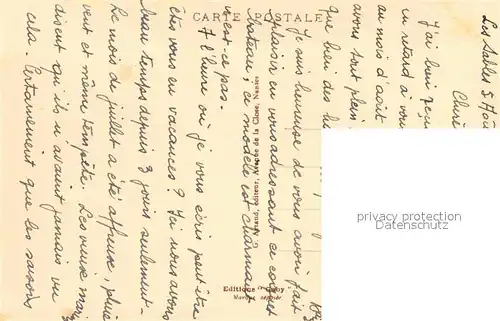 CARTE POSTALE
Les Sables S. Hôte
Chère
J'ai bien reçu
en retard à vous
au mois d'août
avons tout plein
que bien des
Je suis heureuse de vous avoir fait
plaisir en vous adressant ce coffret
bateau ; ce modèle est charmant
n'est ce pas.
A l'heure où je vous écris peut être
êtes vous en vacances ? Ici nous avons
beau temps depuis 3 jours seulement -
Le mois de juillet a été affreux, pluie
vent et même tempête. Les vieux mar
disent qu'ils n'avaient jamais vu
cela. Certainement que les saisons
G. Artaud, éditeur, de la Close, Nantes
Editions "Gaby"
Marque déposée
privacy protection
Datenschutz